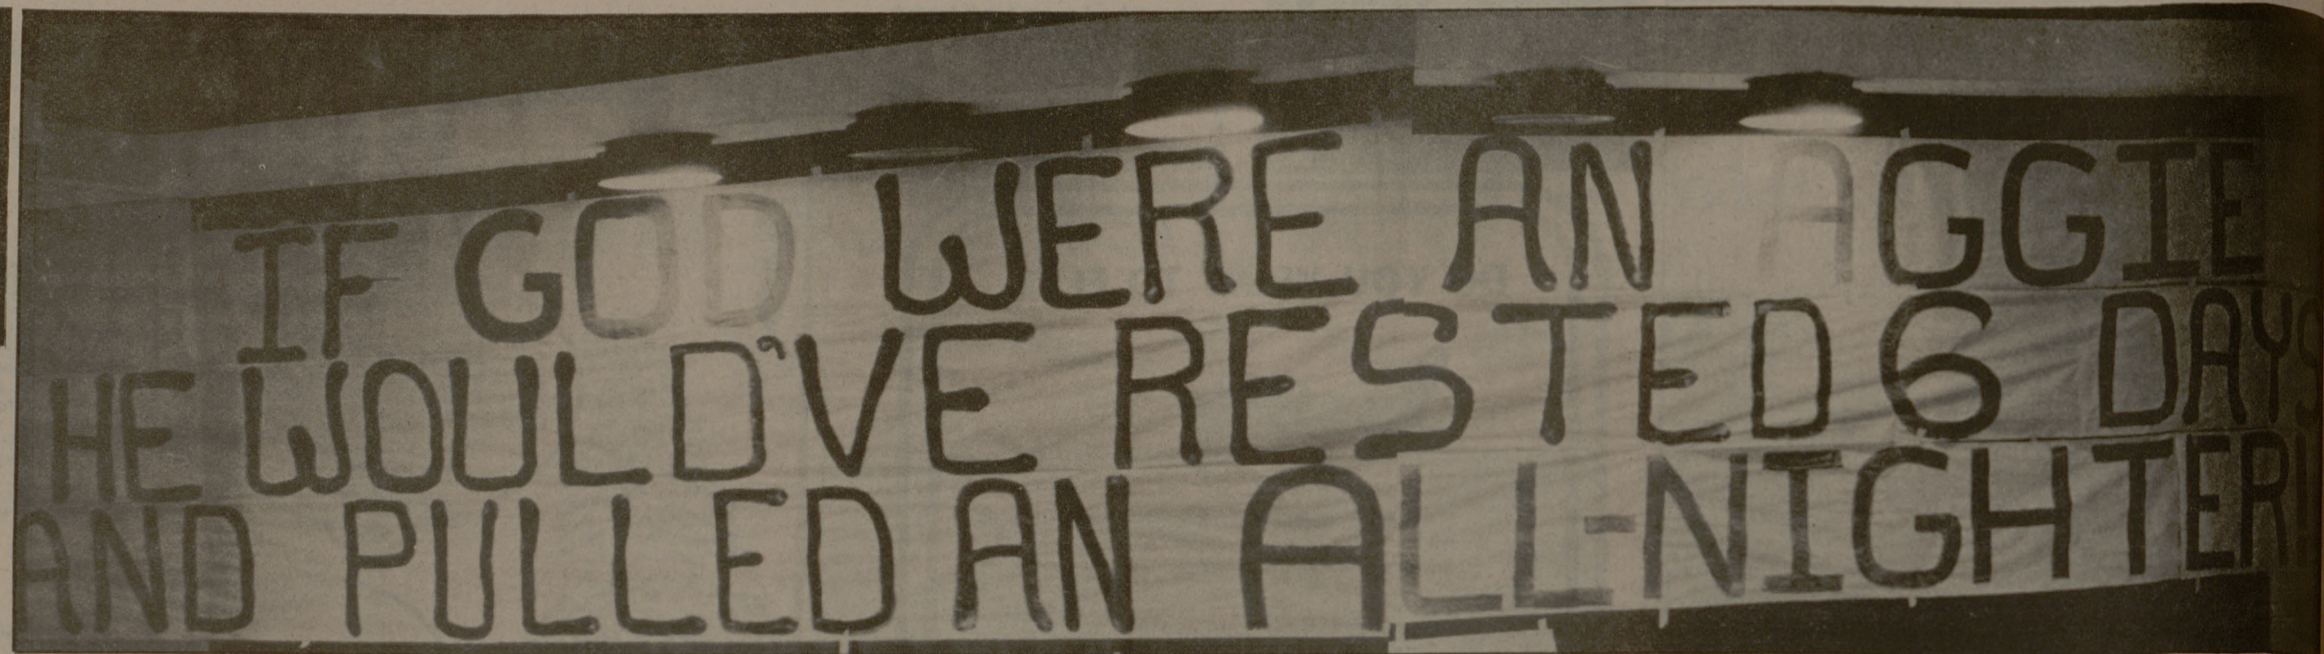 IF GOD WERE AN AGGIE
HE WOULD'VE RESTED 6 DAYS
AND PULLED AN ALL-NIGHTER!